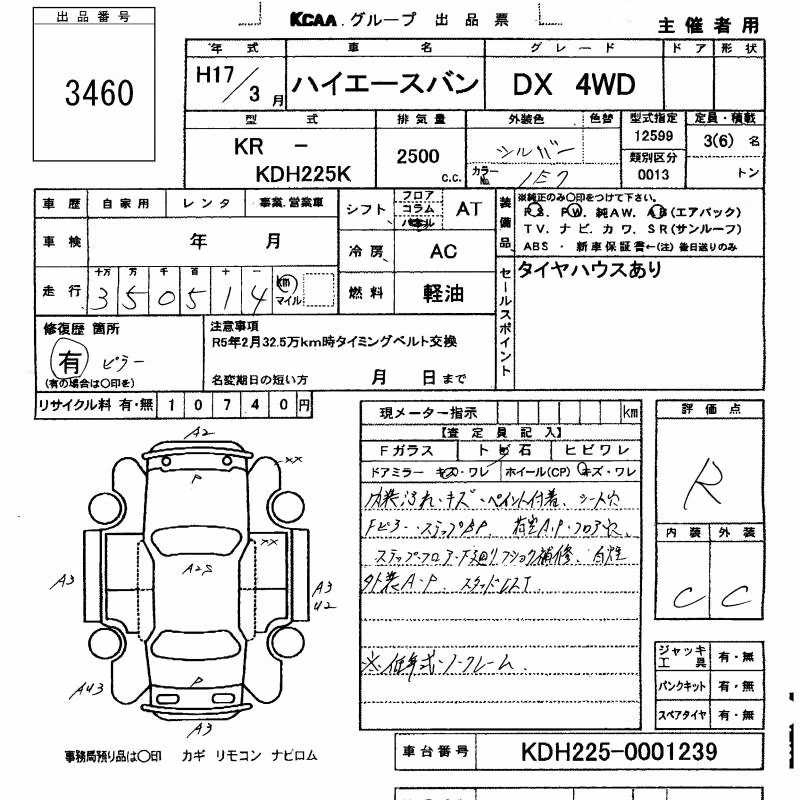 出品番号
3460
KCAA グループ 出品票
主催者用
年式 車名 グレード ドア 形状
H17/3月 ハイエースバン DX 4WD
型式 排気量 外装色 色替 型式指定 定員・積載
KR -
KDH225K
2500 c.c.
シルバー
カラーNo. 1E7
12599
類別区分
0013
3(6) 名
トン
車歴 自家用 レンタ 事業.営業車
車検 年 月
走行 十万 万 千 百 十 一
3 5 0 5 1 4 km マイル
シフト フロア コラム パネル AT
冷房 AC
燃料 軽油
装備品
※純正のみ○印をつけて下さい。
P.S. P.W. 純AW. A.B(エアバック)
T.V. ナビ. カワ. S.R(サンルーフ)
ABS ・ 新車保証書←(注)後日送りのみ
セールスポイント
タイヤハウスあり
修復歴 箇所
有 ピラー
(有の場合は○印を)
注意事項
R5年2月32.5万km時タイミングベルト交換
名変期日の短い方 月 日まで
リサイクル料 有・無 10740円
現メーター指示 km
【査定員記入】
Fガラス トビ石 ヒビワレ
ドアミラー キズ・ワレ ホイール(CP) キズ・ワレ
内装汚れ・キズ・ペイント付着、シート穴
Fピラー・ステップBP、荷室A.P・フロア穴
ステップ・フロア・下廻りフショク補修、白煙
外装A・P. スタッドレスT
※低年式・ノークレーム.
評価点
R
内装 外装
C C
ジャッキ工具 有・無
パンクキット 有・無
スペアタイヤ 有・無
A2
××
P
××
A2S
A3
A3
U2
AU3
P
A3
事務局預り品は○印 カギ リモコン ナビロム
車台番号 KDH225-0001239